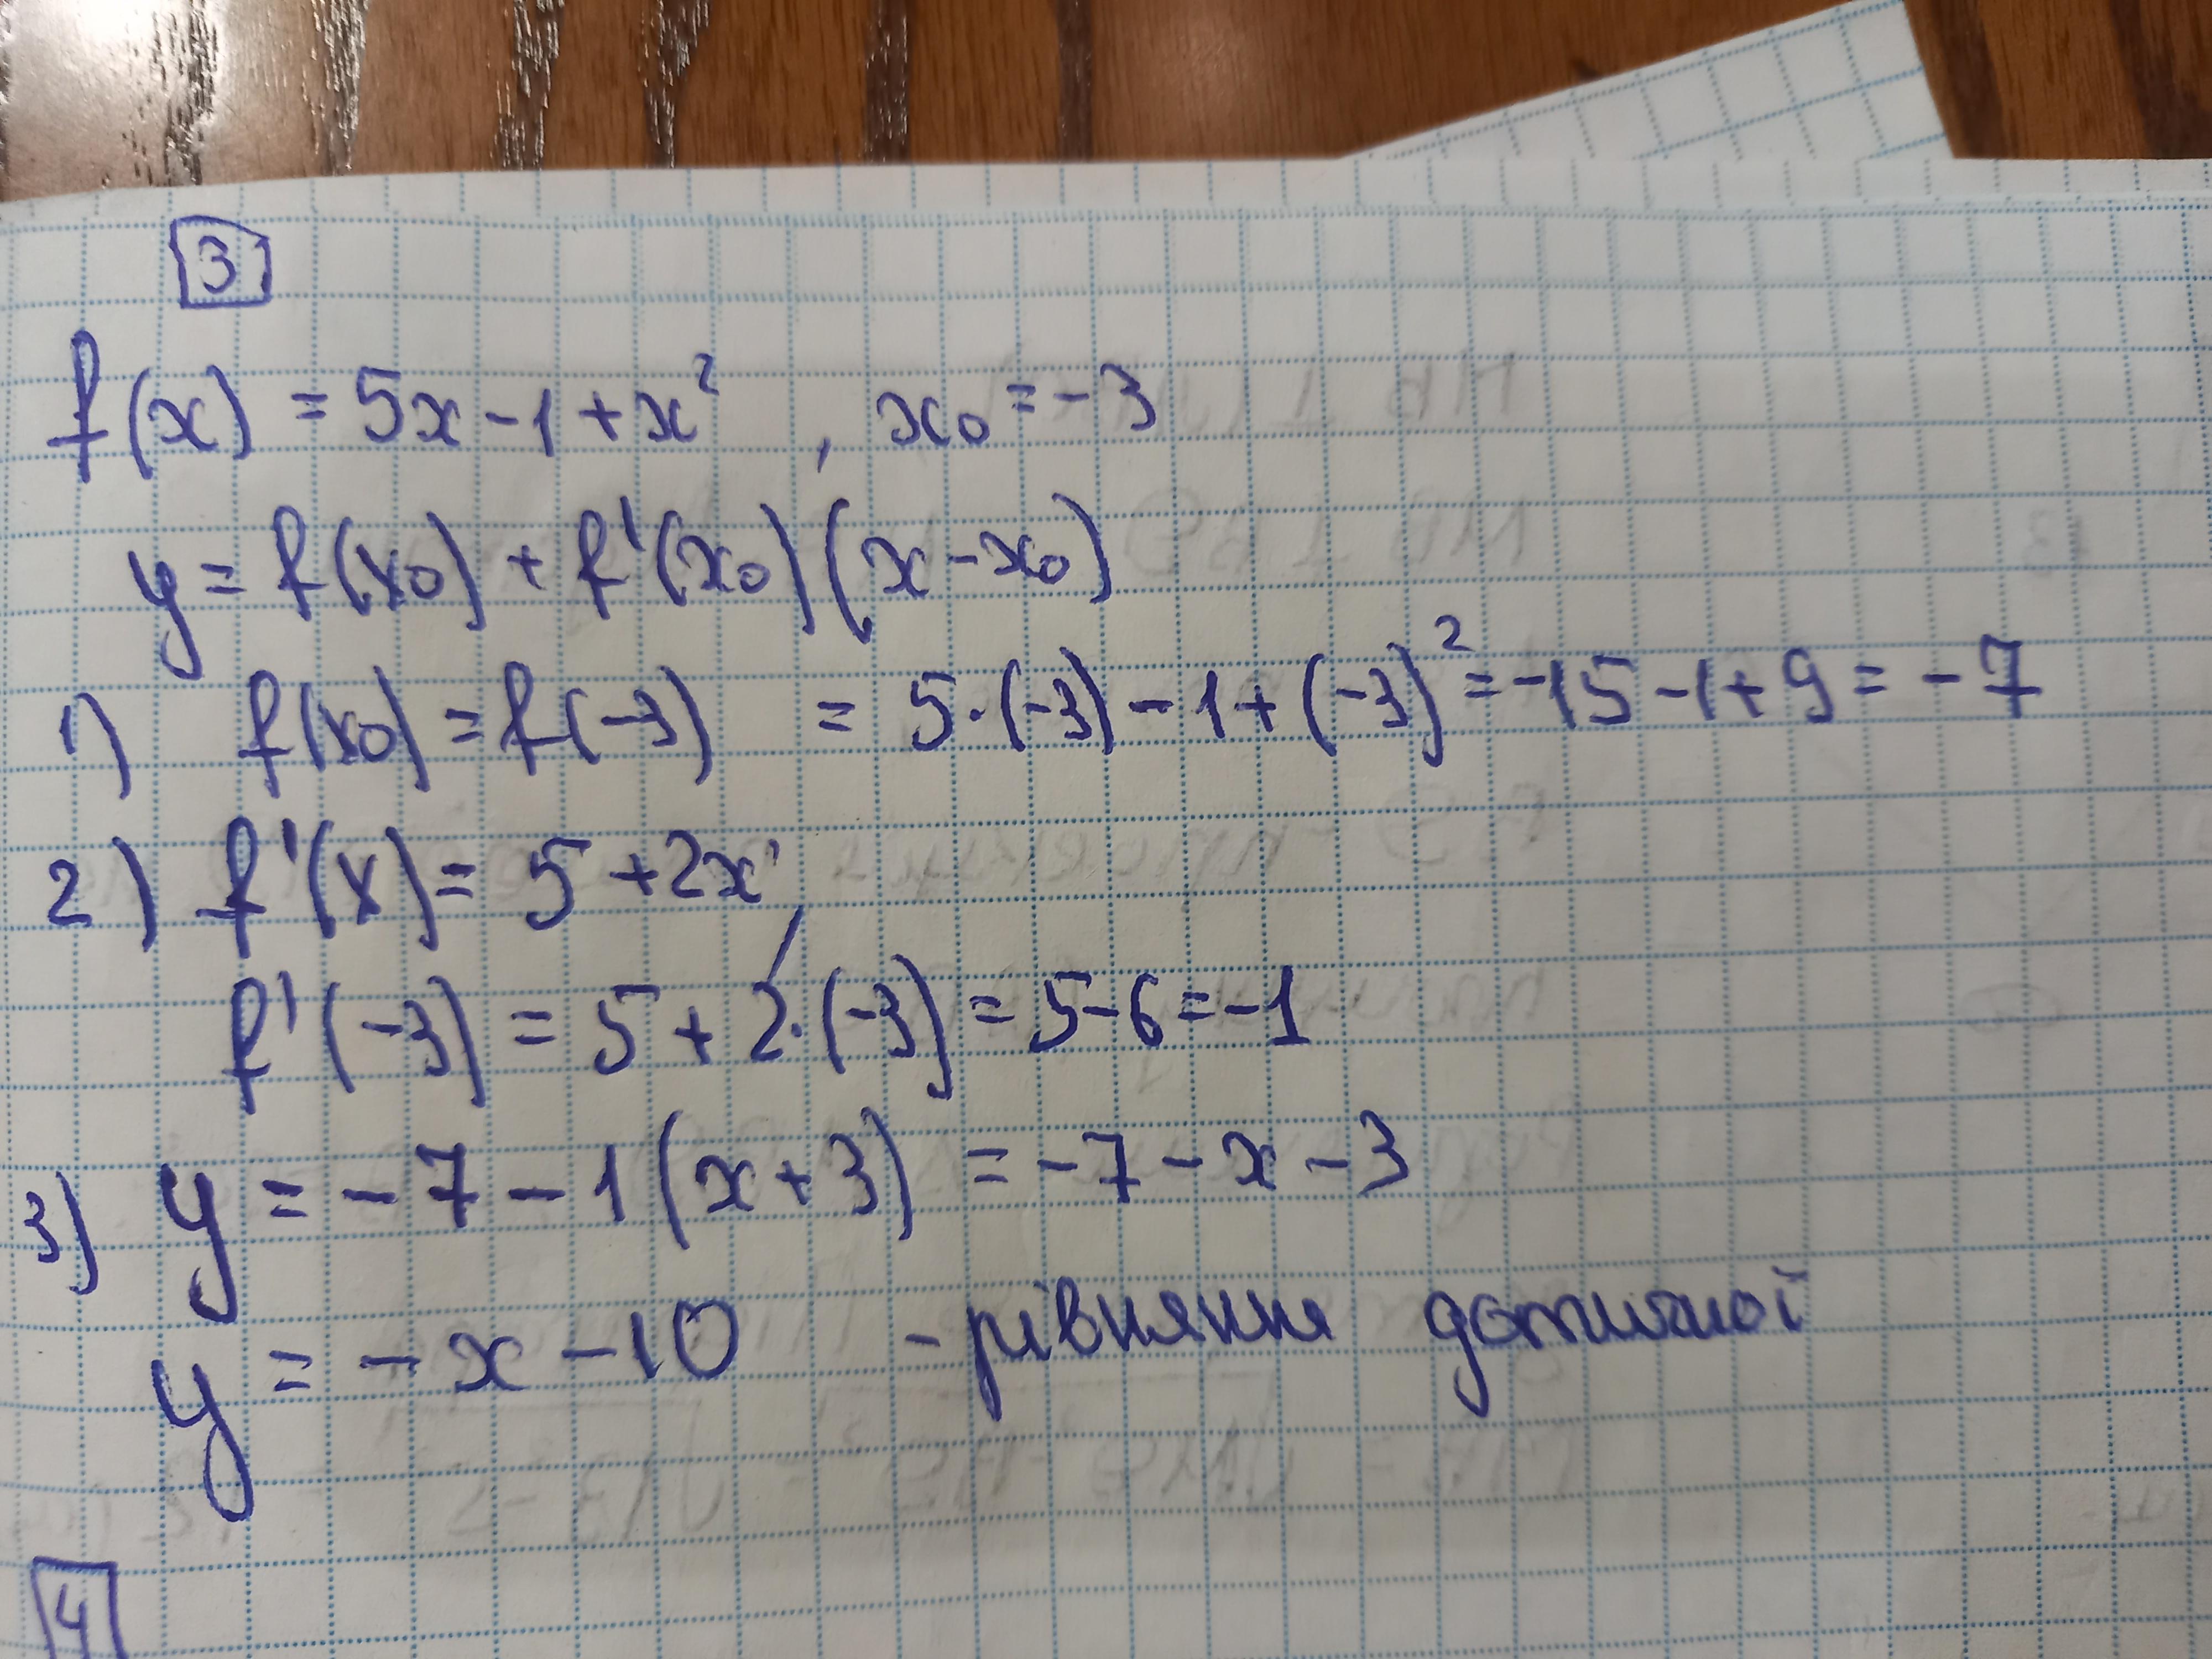 3
f(x) = 5x - 1 + x², x₀ = -3
y = f(x₀) + f'(x₀)(x - x₀)
1) f(x₀) = f(-3) = 5·(-3) - 1 + (-3)² = -15 - 1 + 9 = -7
2) f'(x) = 5 + 2x
f'(-3) = 5 + 2·(-3) = 5 - 6 = -1
3) y = -7 - 1(x + 3) = -7 - x - 3
y = -x - 10 - рівняння дотичної
4